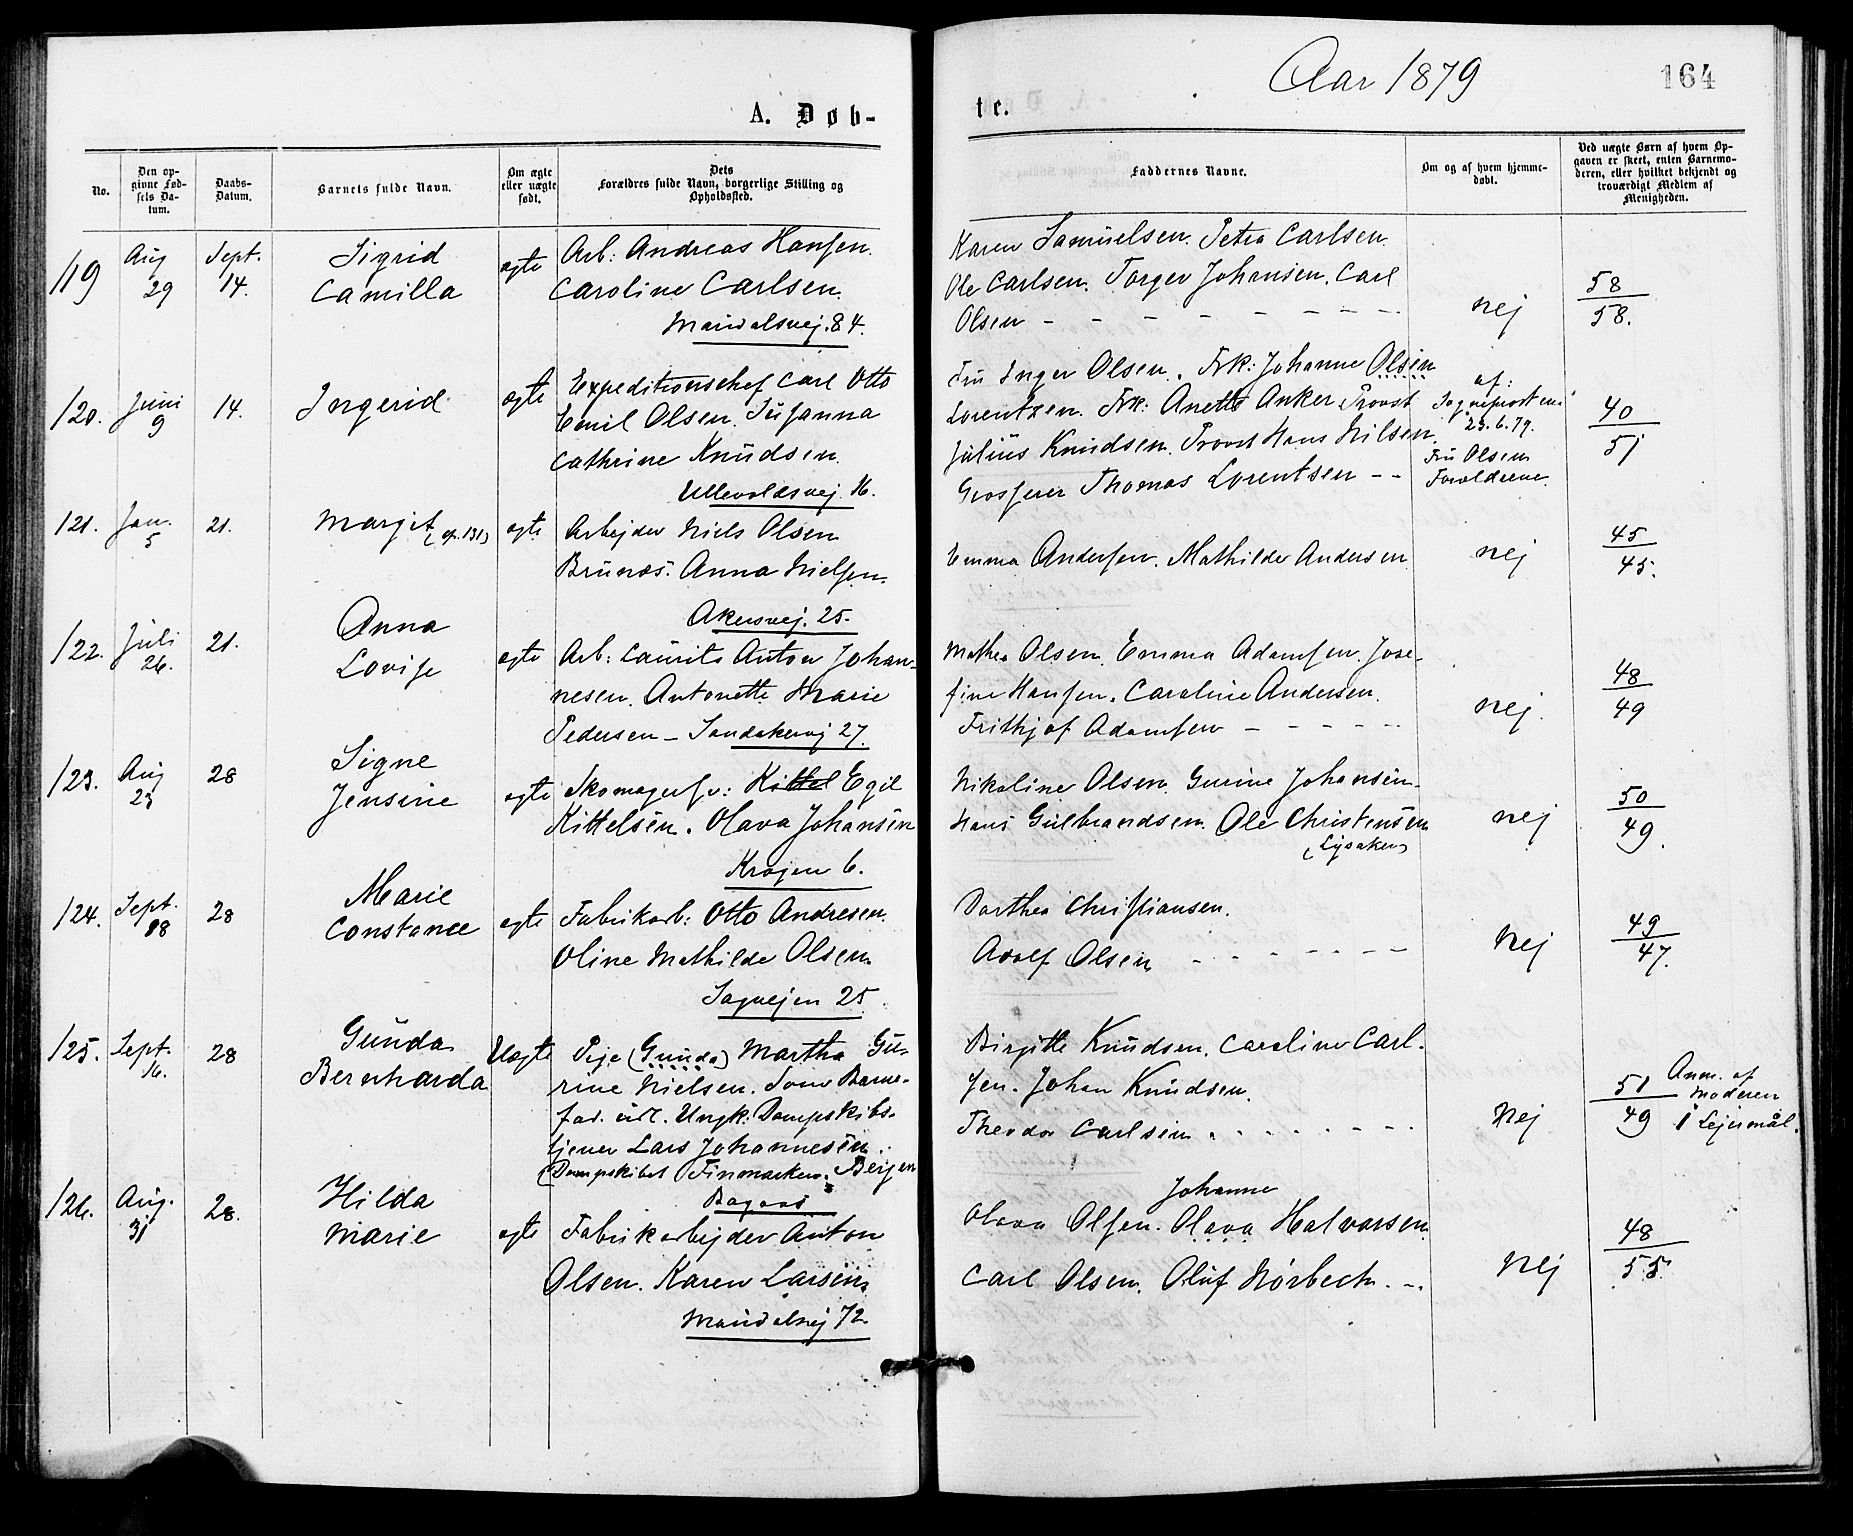 Aar 1879
164
A. Døb-
te.
No.
Den op-
givne Fød-
sels Da-
tum.
Daabs-
Datum.
Barnets fulde Navn.
Om ægte
eller uægte
født.
Dets
Forældres fulde Navn, borgerlige Stilling og
Opholdssted.
Faddernes Navne.
Om og af hvem hjemme-
døbt.
Ved uægte Børn af hvem Op-
gaven er skeet, enten Barnemo-
deren, eller hvilket bekjendt og
troværdigt Medlem af
Menigheden.
119 Aug 29 Sept. 14.
Sigrid
Camilla
ægte
Arb: Andreas Hansen.
Caroline Carlsen.
Maridalsvej. 84.
Karen Samuelsen. Petra Carlsen.
Ole Carlsen. Torger Johansen. Carl
Olsen - - - - - - - -
nej
58
58.
120. Juni 9 14.
Ingerid
ægte
Expeditionschef Carl Otto
Emil Olsen. Susanna
Cathrine Knudsen.
Ullevoldsvej 16.
Fru Inger Olsen. Frk: Johanne Olsen
Lorentzen. Frk: Anette Anker Provst
Julius Knudsen. Provst Hans Nilsen
Grosserer Thomas Lorentsen - -
af:
Sogneprosten
23.6.79.
Fru Olsen
Forældrene.
40
51
121. Jan. 5 21.
Margit (cf. 131)
ægte
Arbejder Niels Olsen
Brunæs. Anna Nielsen.
Akersvej. 25.
Emma Andersen. Mathilde Andersen
nej
45
45.
122. Juli 26. 21.
Anna
Lovise
ægte
Arb: Laurits Anton Johan-
nesen. Antonette Marie
Pedersen - Sandakervej 27.
Mathea Olsen. Emma Adamsen. Jose-
fine Hansen. Caroline Andersen.
Frithjof Adamsen - - - - -
nej.
48
49
123. Aug 23 28
Signe
Jensine
ægte
Skomagersv: Kittel Egil
Kittelsen. Olava Johansen
Krogen 6.
Nikoline Olsen. Gurine Johansen.
Hans Gulbrandsen. Ole Christensen
(Lysaker)
nej
50
49.
124. Sept. 18 28
Marie
Constance
ægte
Fabrikarb: Otto Andresen.
Oline Mathilde Olsen.
Sagvejen 25.
Dorthea Christiansen.
Adolf Olsen - - - - - -
Nej
49
47.
125. Sept. 16. 28
Gunda
Bernharda
Uægte
Pige (Gunda) Martha Gu-
rine Nielsen. Som Barne-
fad. udl. Ungk: Dampskibs-
tjener Lars Johannesen.
(Dampskibet Finmarken. Bergen
Bagaas
Birgitte Knudsen. Caroline Carl-
sen. Johan Knudsen.
Theodor Carlsen - - - - - -
Nej
51
49
Anm. af
Moderen
1 Lejermål.
126. Aug. 31 28.
Hilda
Marie
ægte
Fabrikarbejder Anton
Olsen. Karen Larsen
Maridalsvej 72.
Johanne
Olava Olsen. Olava Halvorsen
Carl Olsen. Oluf Nørbech. -.
Nej
48
55.